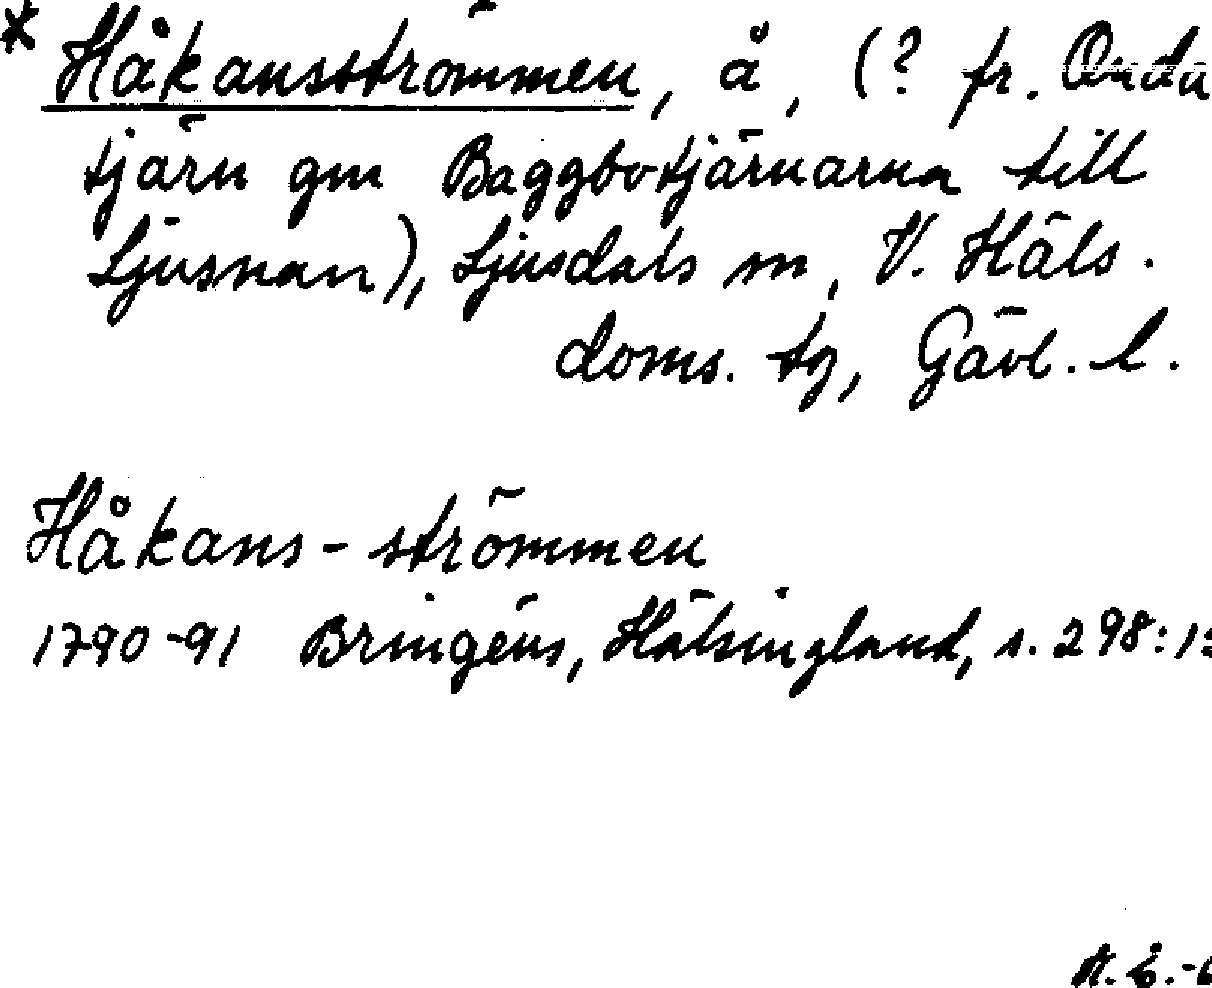 * Håkansströmmen, å, (? fr. Onda
tjärn gm Baggbotjärnarna till
Ljusnan), Ljusdals sn, V. Häls.
doms. tg, Gävl. l.
Håkans-strömmen
1790-91 Bringéus, Hälsingland, s. 298:1